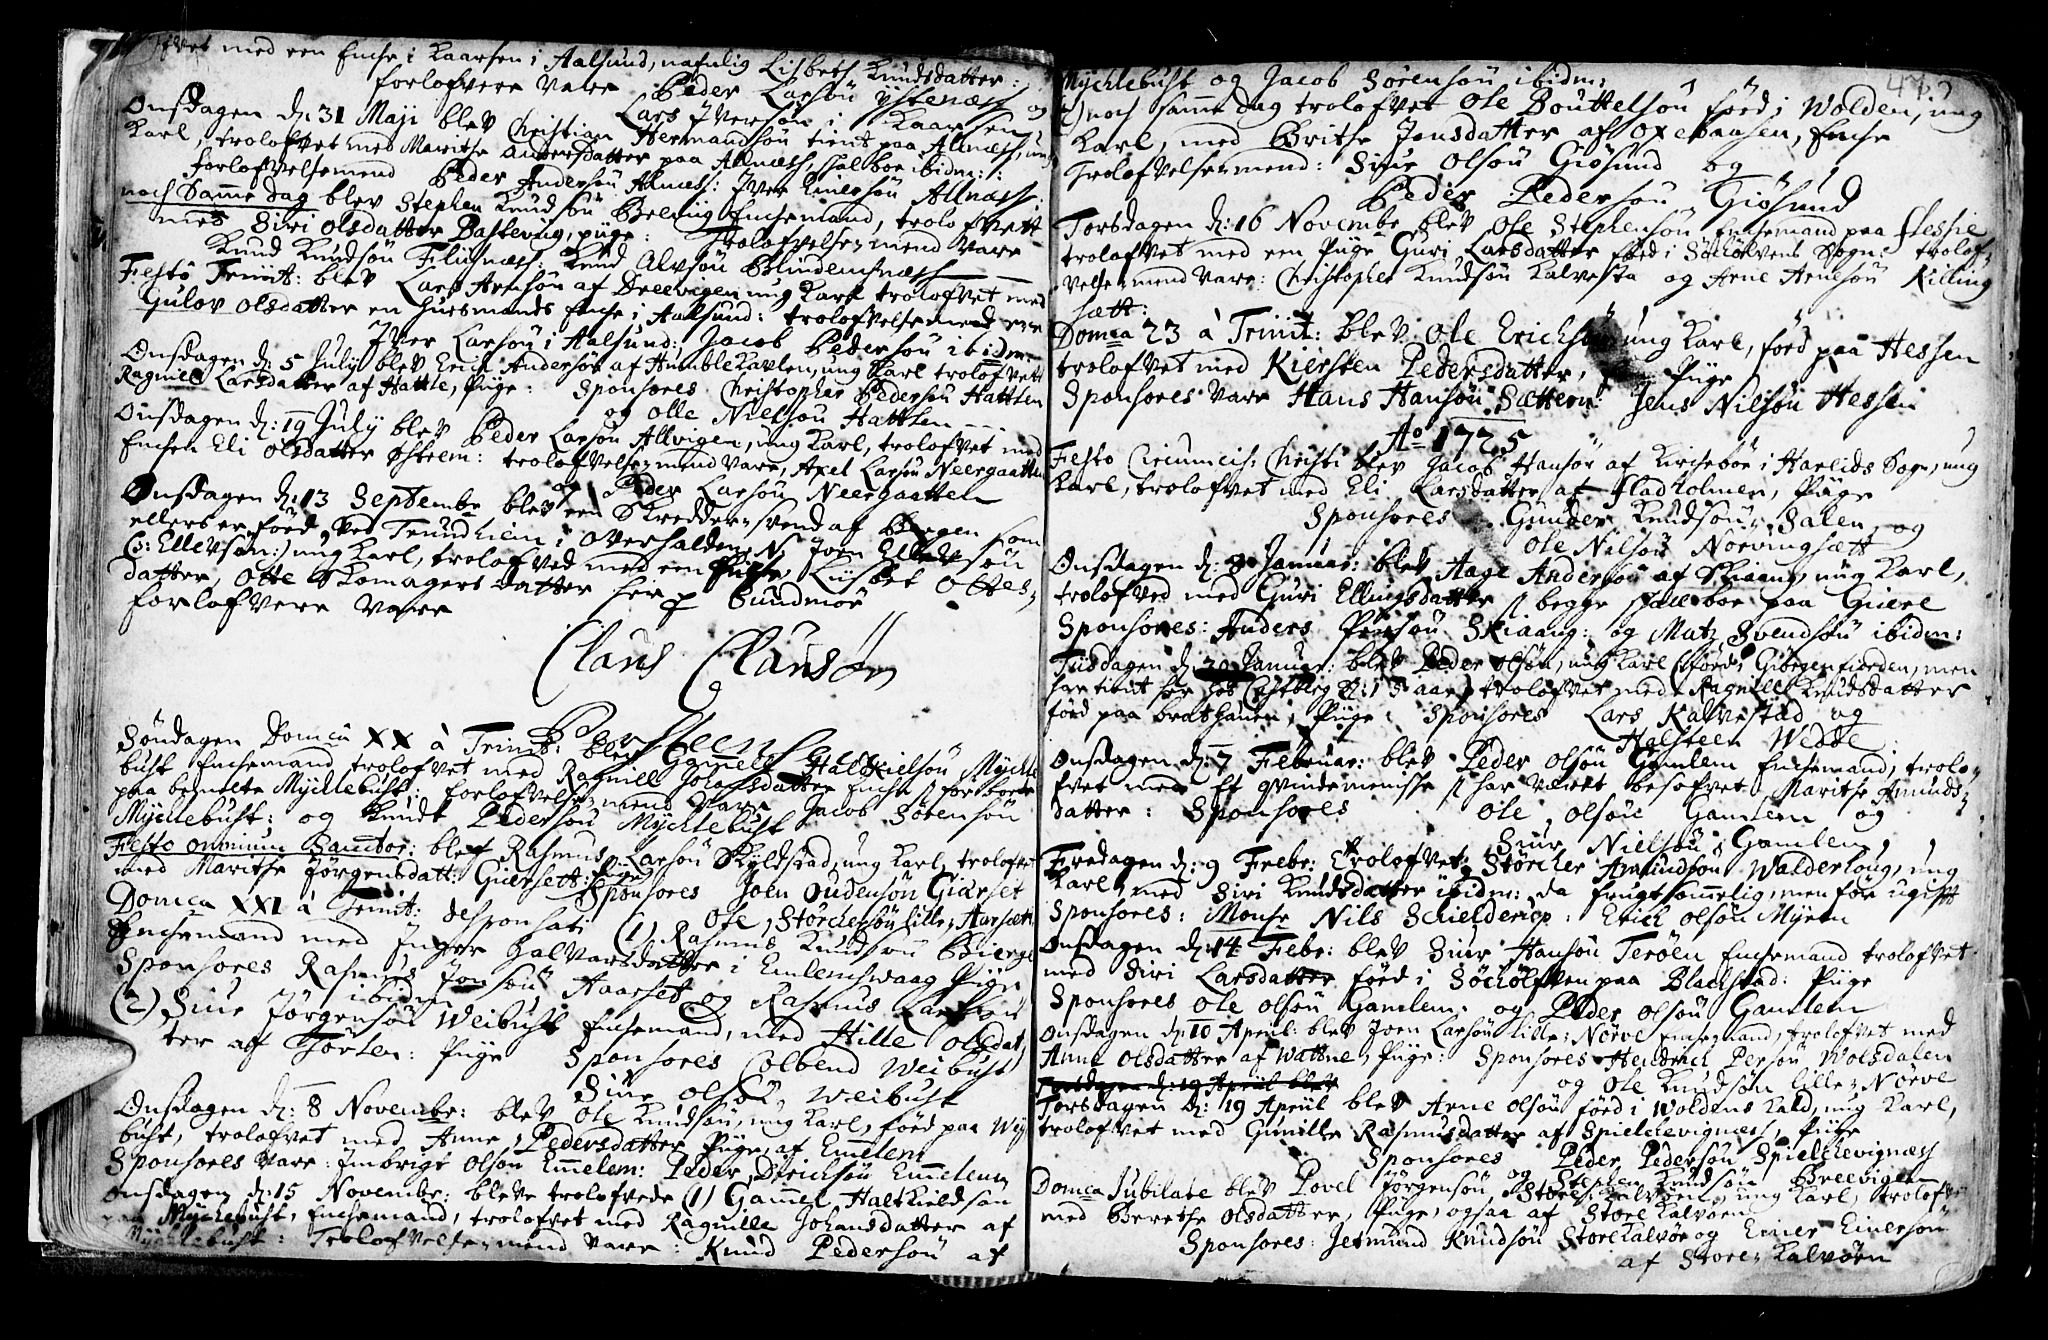 med een Enche i Kaarsen i Aalsund, nafnlig Lisbeth Knudsdatter:
forlofvere vare Peder Larsøn Ystenæss og
Lars Iversøn i Kaarsen
Onsdagen d: 31 Maji blev Christian Hermandsøn tient paa Alnæss, ung
Karl, trolofvet med Marithe Andersdatter paa Allnæss, ibidm:
forlofvelsesmend Peder Andersøn Alnæss: Iver Einersøn Allnæss:
noch samme dag blev Stephen Knudsøn Enchemand, trolofvett
med Siri Olsdatter Pastevug, piige: Trolofvelsesmend vare
Knud Knudsøn Fliisnæss: Knud Alvsøn Blindemsnæss
Festo Trinit: blev Lars Arnesøn af Breevigen ung Karl trolofvet med
Gulov Olsdatter en Huusmands Enche i Aalsund: trolofvelsesmend ere
Iver Larsøn i Aalsund: Jacob Pedersøn ibidm:
Onsdagen d: 5 July blev Erich Andersøn af Humblekavlen, ung Karl trolofvett
Ragnild Larsdatter af Hattle, Piige: Sponsores Christopher Pedersøn Hattlen
og Olle Nielsøn Hattlen
Onsdagen d: 19 July blev Peder Larsøn Allvigen, ung Karl, trolofvet med
Enchen Eli Olsdatter Østrem: trolofvelsesmend vare, Axel Larsøn Neergaatten
og Peder Larsøn Neergaatten
Onsdagen d: 13 Septembr blev een Skreddersvend af Bergen som
ellers er føed ved Trundhiem i Overhalden, N. Joen Ellefsøn
(o: Ellevsøn:) ung Karl, trolofved med een Piige, Liisbet Ottes-
datter, Otte Skomagers datter her p Sundmør
forlofvere vare
Claus Clausøn
Søndagen Domca XX à Trinit: blev Gamel Halkielsøn Myckle-
bust Enchemand trolofvet med Ragnill Johansdatter Enche
paa bemelte Mychlebust: forlofvelsesmend vare Jacob Sørensøn
Mychlebust: og Knudt Pedersøn Mychlebust
Festo omnium Sanctor: blef Rasmus Larsøn Skyldstad, ung Karl, trolofvet
med Marithe Jørgensdatt: Gierset: piige Sponsores Joen Oudensøn Giærset
Ole Størchersøn lille-Aarsæth
Domca XXI à Trinit: desponsati (1) Rasmus Knudsøn Bierge
Enchemand med Inger Halvarsdatter i Emlemswaag Piige
Sponsores Rasmus Jonsøn Aarset og Rasmus Larsøn
ibidem
(2) Siur Jørgensøn Weibust Enchemand, med Hille Olsdat-
ter af Thørlen: Piige Sponsores Colbend Weibust
Siur Olsøn, Weibust
Onsdagen d: 8 Novembr: blev Ole Knudsøn, ung Karl, føed paa My-
bust, trolofvet med Anne Pedersdatter Piige, af Emelem
Sponsores vare: Imbrigt Olsøn Emelem: Peder Dirichsøn Emelem
Onsdagen d: 15 Novembr: bleve trolofvede (1) Gammel Halkieldsøn
paa Mychlebust, Enchemand, trolofvet med Ragnille Johansdatter af
Mychlebust: Trolofvelsesmend vare: Knud Pedersøn af
47
Mychlebust og Jacob Sørensøn ibidm:
2) noch samme dag trolofvet Ole Bouttelsøn føed i Wolden, ung
Karl, med Brithe Jonsdatter af Oxebaasen, Enche
Trolofvelsesmend: Siur Olsøn Giøsund og
Peder Pedersøn Giøsund
Torsdagen d: 16 Novembr blev Ole Stephensøn Enchemand paa Flessie
trolofvet med een Piige Guri Larsdatter føed i Søchelvens Sogn: trolof-
velsesmend vare: Christopher Knudsøn Kalvesta og Arne Arnesøn Killing-
sætt:
Domca 23 à Trinit: blev Ole Erichsøn ung Karl, føed paa Hessen
trolofvet med Kiersten Pedersdatter, Piige
Sponsores vare Hans Hansøn Sætteren: Jens Nilsøn Hessen
Ao 1725
Festo Circumcis: Christi blev Jacob Hansøn af Kirchebøe i Hareids Sogn, ung
Karl, trolofvet med Eli Larsdatter af Fladholmen, Piige
Sponsores Gunder Knudsøn Salen, og
Ole Nilsøn Norvingsætt
Onsdagen d: Januar: blev Aage Andersøn af Skaang, ung Karl,
trolofved med Guri Ellingsdatter begge paa Giuere
Sponsores: Anders Skiaang: og Matz Svendsøn ibidm:
Tiisdagen d: Januar: blev Peder Olsøn, ung Karl (føed i Giørgenfiorden, men
har tient her hos i aar) trolofvet med Ragnille Knudsdatter
føed paa Bratshauen, Piige: Sponsores Lars Kalvestad og
Halsteen Wedde
Onsdagen d: 7 Februar: blev Peder Olsøn Gamlem Enchemand, trolo-
fvet med Et qvindemenische har været besofvet, Marithe Amunds-
datter: Sponsores Ole Olsøn Gamlem og
Siur Nielsøn Gamlem
Fredagen d: 9 Febr: Trolofvet Størcher Amundsøn Walderhoug, ung
Karl, med Siri Knudsdatter ibidm: da frugtsommelig, men før ugift
Sponsores: Monsr Nils Schielderop: Erich Olsøn Myren
Onsdagen d: 14 Febr: blev Siur Hansøn Terøen Enchemand trolofvet
med Siri Larsdatter føed i Søchelfven paa Blachstad: Piige
Sponsores Ole Olsøn Gamlem, og Peder Olsøn Gamlem
Onsdagen d: 10 April: blev Joen Larsøn lille-Nørve Enchemand, trolofvet med
Anne Olsdatter af Wattne, Piige: Sponsores Hendrich Persøn Wolsdalen
og Ole Knudsøn lille-Nørve
Torsdagen d: 19 Apriil blev
Torsdagen d: 19 Apriil blev Arne Olsøn føed i Woldens Kald, ung Karl,
trolofvet med Gunille Rasmusdatter af Spielchevignæss, Piige
Sponsores Peder Pedersøn Spielchevignæss
og Stephen Knudsøn Breevigen
Domca Jubilate blev Povel Jørgensøn, Store Kalvøen, ung Karl, trolofvet
med Berethe Olsdatter, Piige, ogsaa af Store Kalvøen
Sponsores: Jetmund Knudsøn Store Kalvøe og Einer Einersøn
af Store-Kalvøen